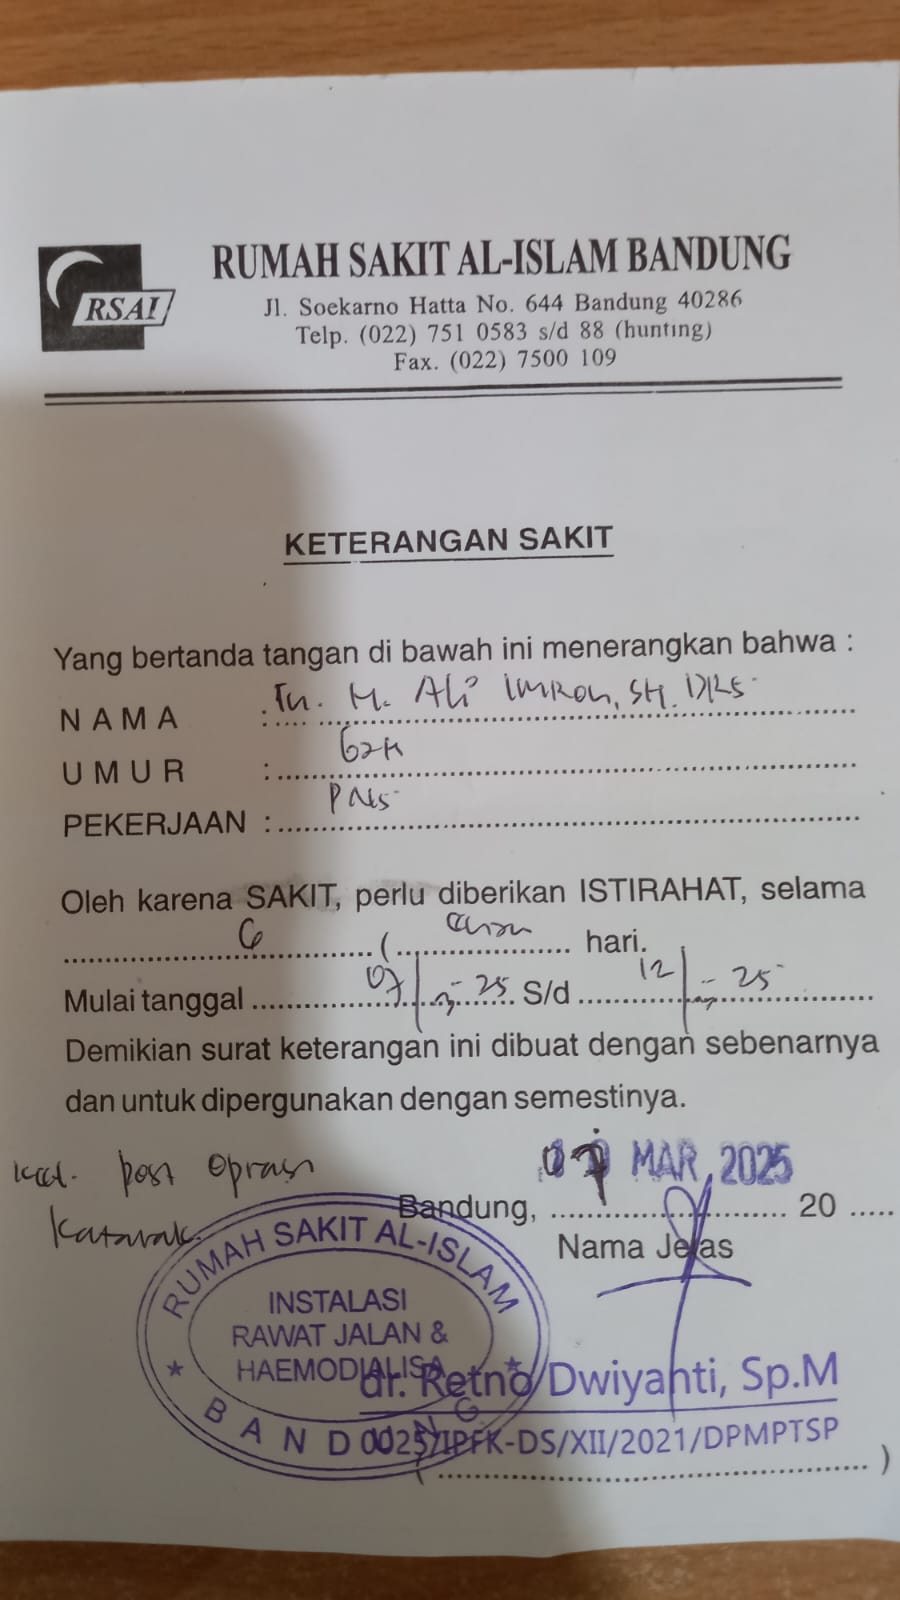 RSAI
RUMAH SAKIT AL-ISLAM BANDUNG
Jl. Soekarno Hatta No. 644 Bandung 40286
Telp. (022) 751 0583 s/d 88 (hunting)
Fax. (022) 7500 109
KETERANGAN SAKIT
Yang bertanda tangan di bawah ini menerangkan bahwa :
NAMA : Tn. M. Ali Imron, SH.
UMUR :
PEKERJAAN : PNS
Oleh karena SAKIT, perlu diberikan ISTIRAHAT, selama
6 ( hari.
Mulai tanggal 07/3-25 S/d 12/3-25
Demikian surat keterangan ini dibuat dengan sebenarnya
dan untuk dipergunakan dengan semestinya.
Ket. post Oprasi
Katarak
07 MAR 2025
Bandung, 20
Nama Jelas
RUMAH SAKIT AL-ISLAM
INSTALASI
RAWAT JALAN &
HAEMODIALISA
BANDUNG
dr. Retno Dwiyanti, Sp.M
0025/IPFK-DS/XII/2021/DPMPTSP
( )